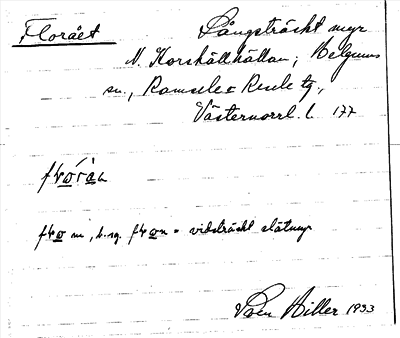 Florået
Långsträckt myr
N. Korshällhällan; Helgums
sn., Ramsele o Resele tg.,
Västernorrl. l. 177
m, b. sg. = vidsträckt slåtmyr
Sven Hiller 1933